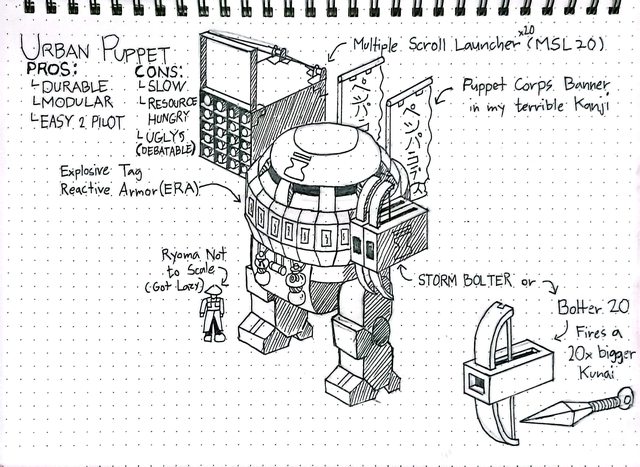 URBAN PUPPET
PROS:
DURABLE
MODULAR
EASY 2 PILOT
CONS:
SLOW
RESOURCE
HUNGRY
UGLY
(DEBATABLE)
x20
Multiple Scroll Launcher (MSL 20)
Puppet Corps Banner
in my terrible Kanji
Explosive Tag
Reactive Armor (ERA)
Ryoma Not
to Scale
(Got Lazy)
STORM BOLTER or
Bolter 20
Fires a
20x bigger
Kunai